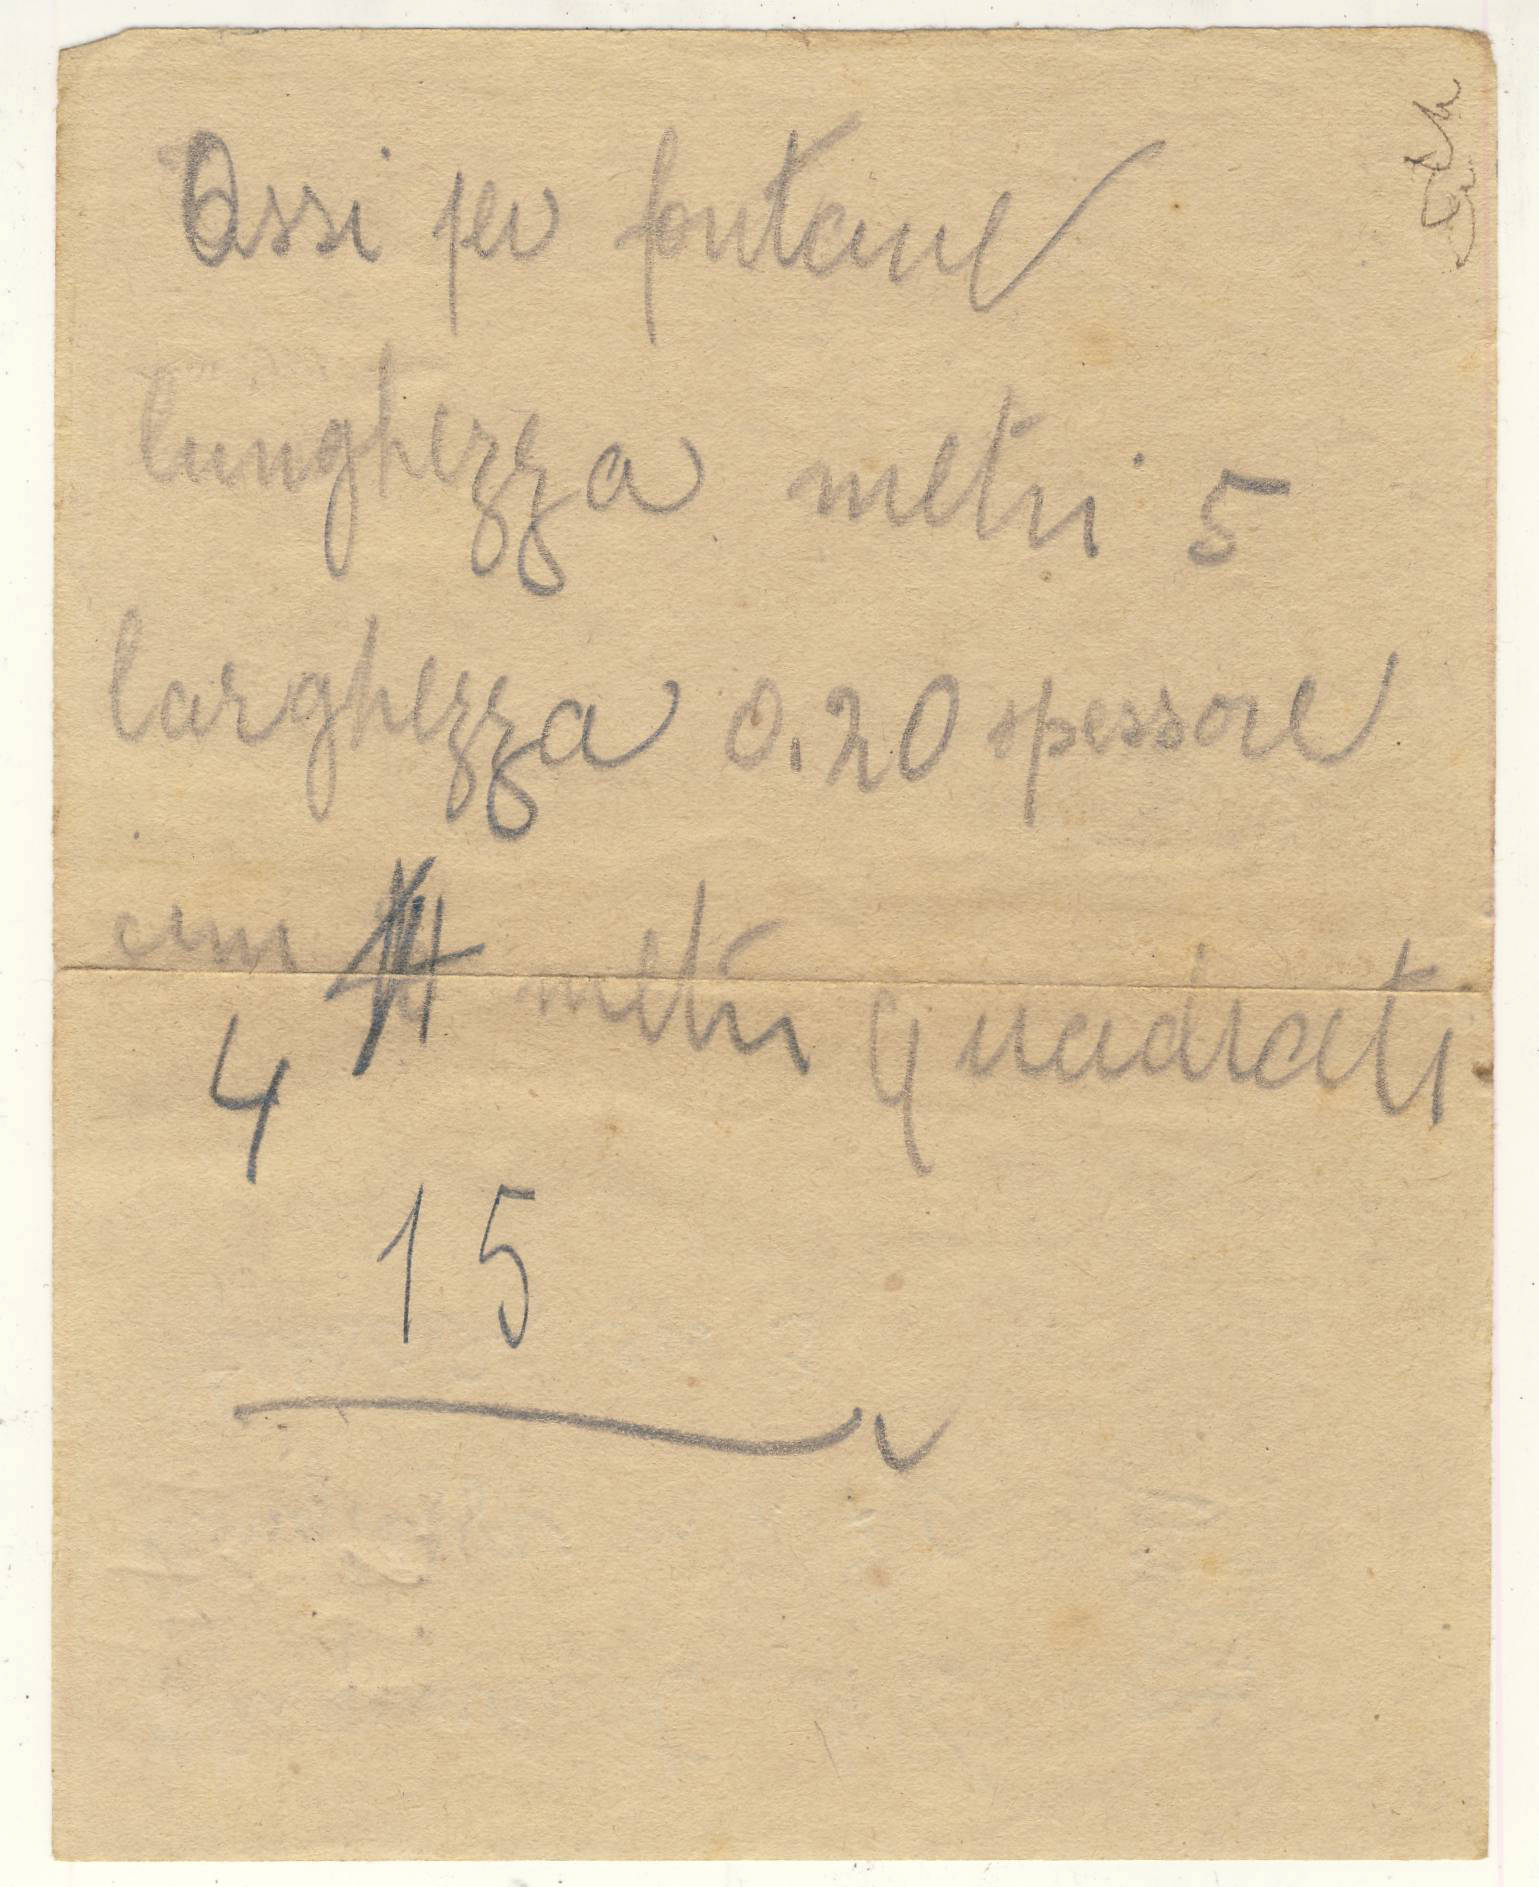 Assi per fontane
lunghezza metri 5
larghezza 0.20 spessore
cm metri quadrati
4
15